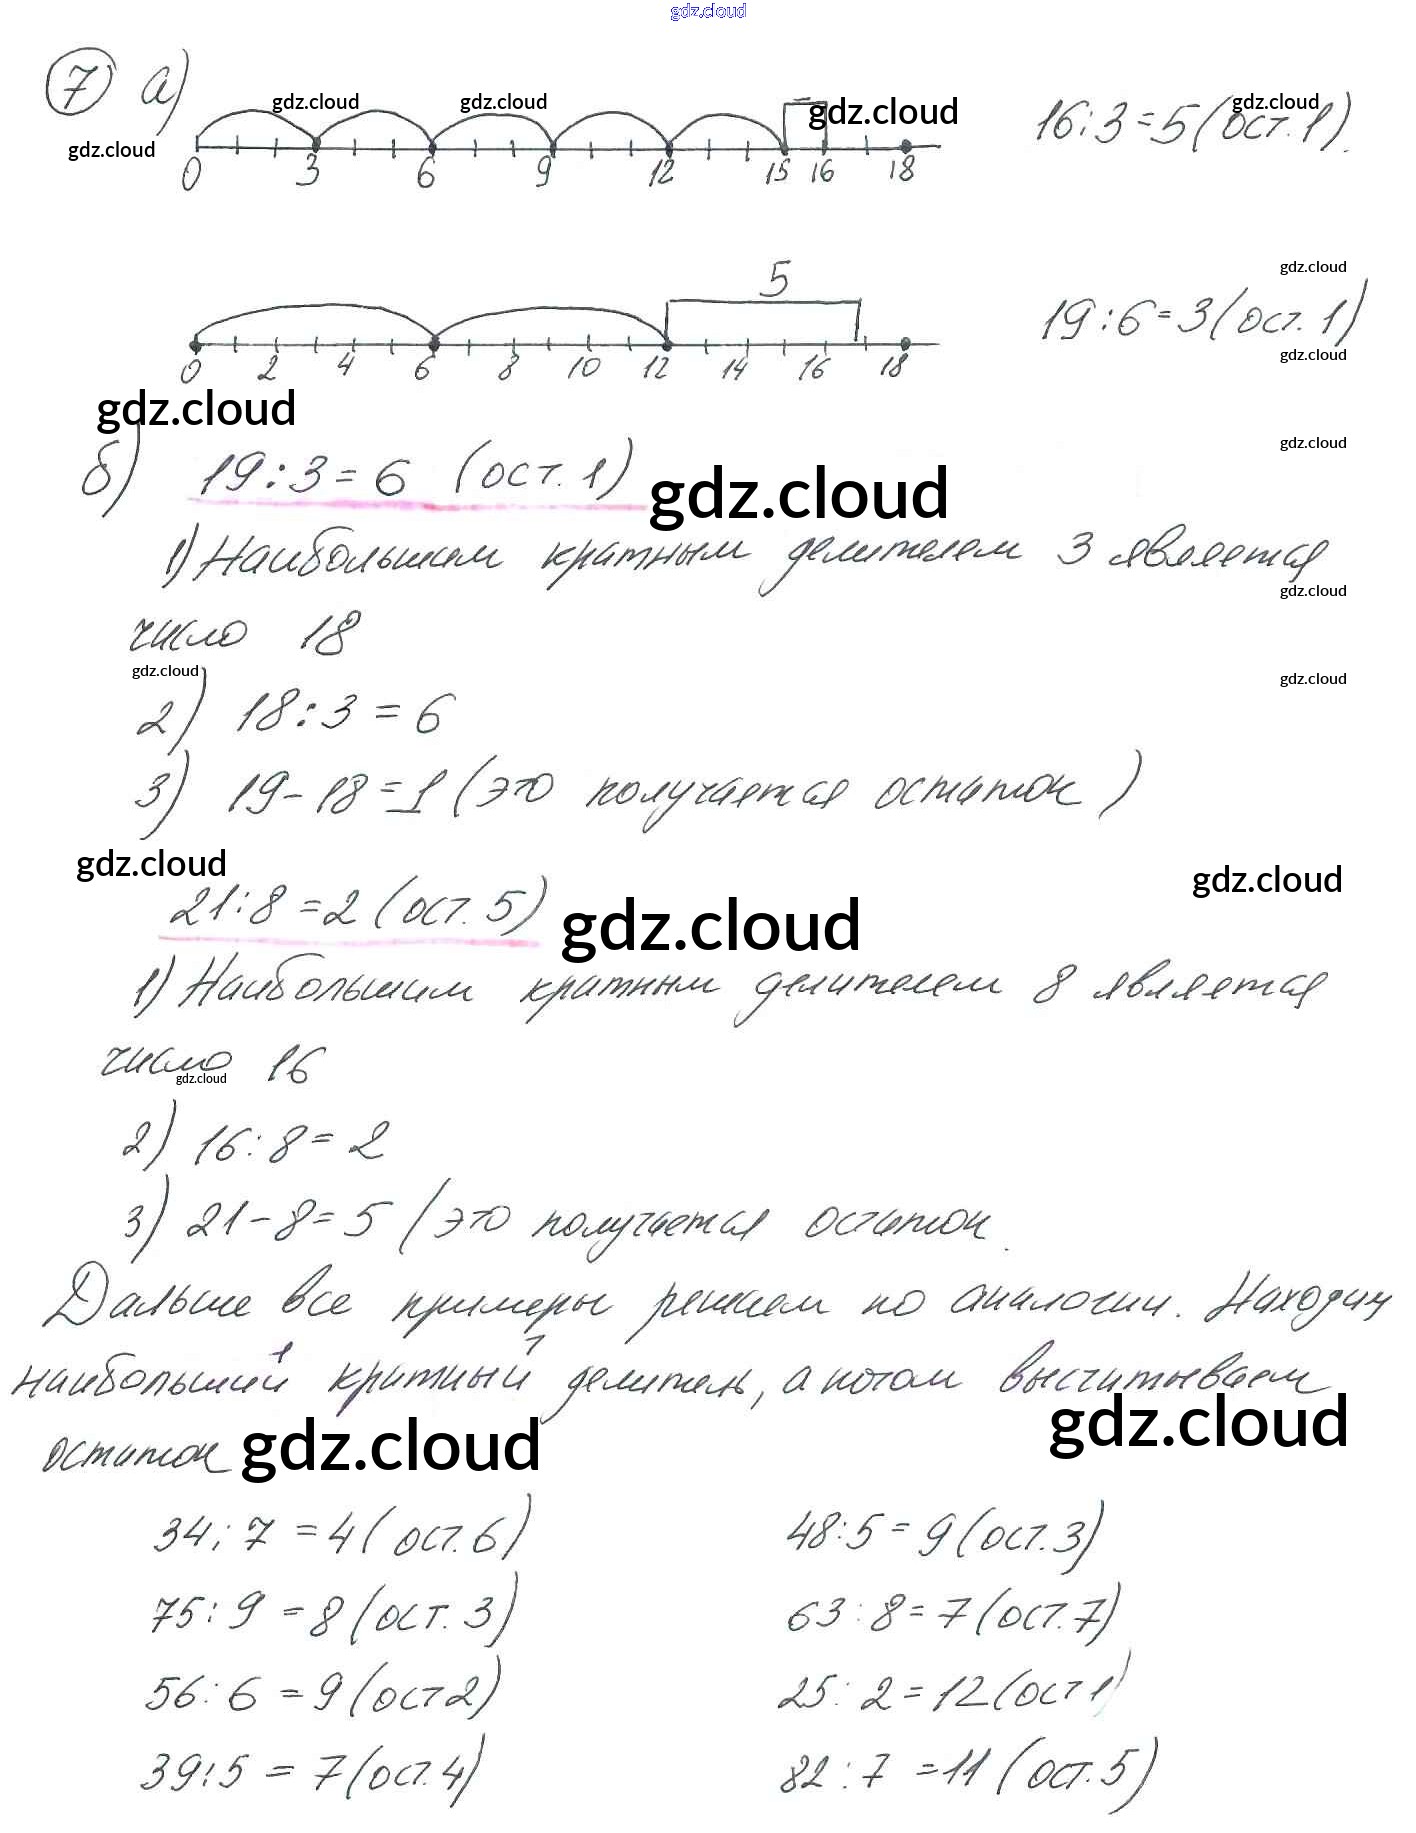 gdz.cloud
7 а)
gdz.cloud gdz.cloud gdz.cloud gdz.cloud
16:3=5(ост.1).
gdz.cloud
0 3 6 9 12 15 16 18
gdz.cloud
5
19:6=3(ост.1)
gdz.cloud
0 2 4 6 8 10 12 14 16 18
gdz.cloud
gdz.cloud
б) 19:3=6 (ост.1)
gdz.cloud
1) Наибольшим кратным делителем 3 является
gdz.cloud
число 18
gdz.cloud gdz.cloud
2) 18:3=6
3) 19-18=1 (это получается остаток)
gdz.cloud gdz.cloud
21:8=2 (ост.5)
gdz.cloud
1) Наибольшим кратным делителем 8 является
число 16
gdz.cloud
2) 16:8=2
3) 21-8=5 (это получается остаток.
Дальше все примеры решаем по аналогии. Находим
наибольший кратный делитель, а потом высчитываем
gdz.cloud
остаток gdz.cloud
34:7=4(ост.6) 48:5=9(ост.3)
75:9=8(ост.3) 63:8=7(ост.7)
56:6=9(ост2) 25:2=12(ост1)
39:5=7(ост.4) 82:7=11(ост.5)